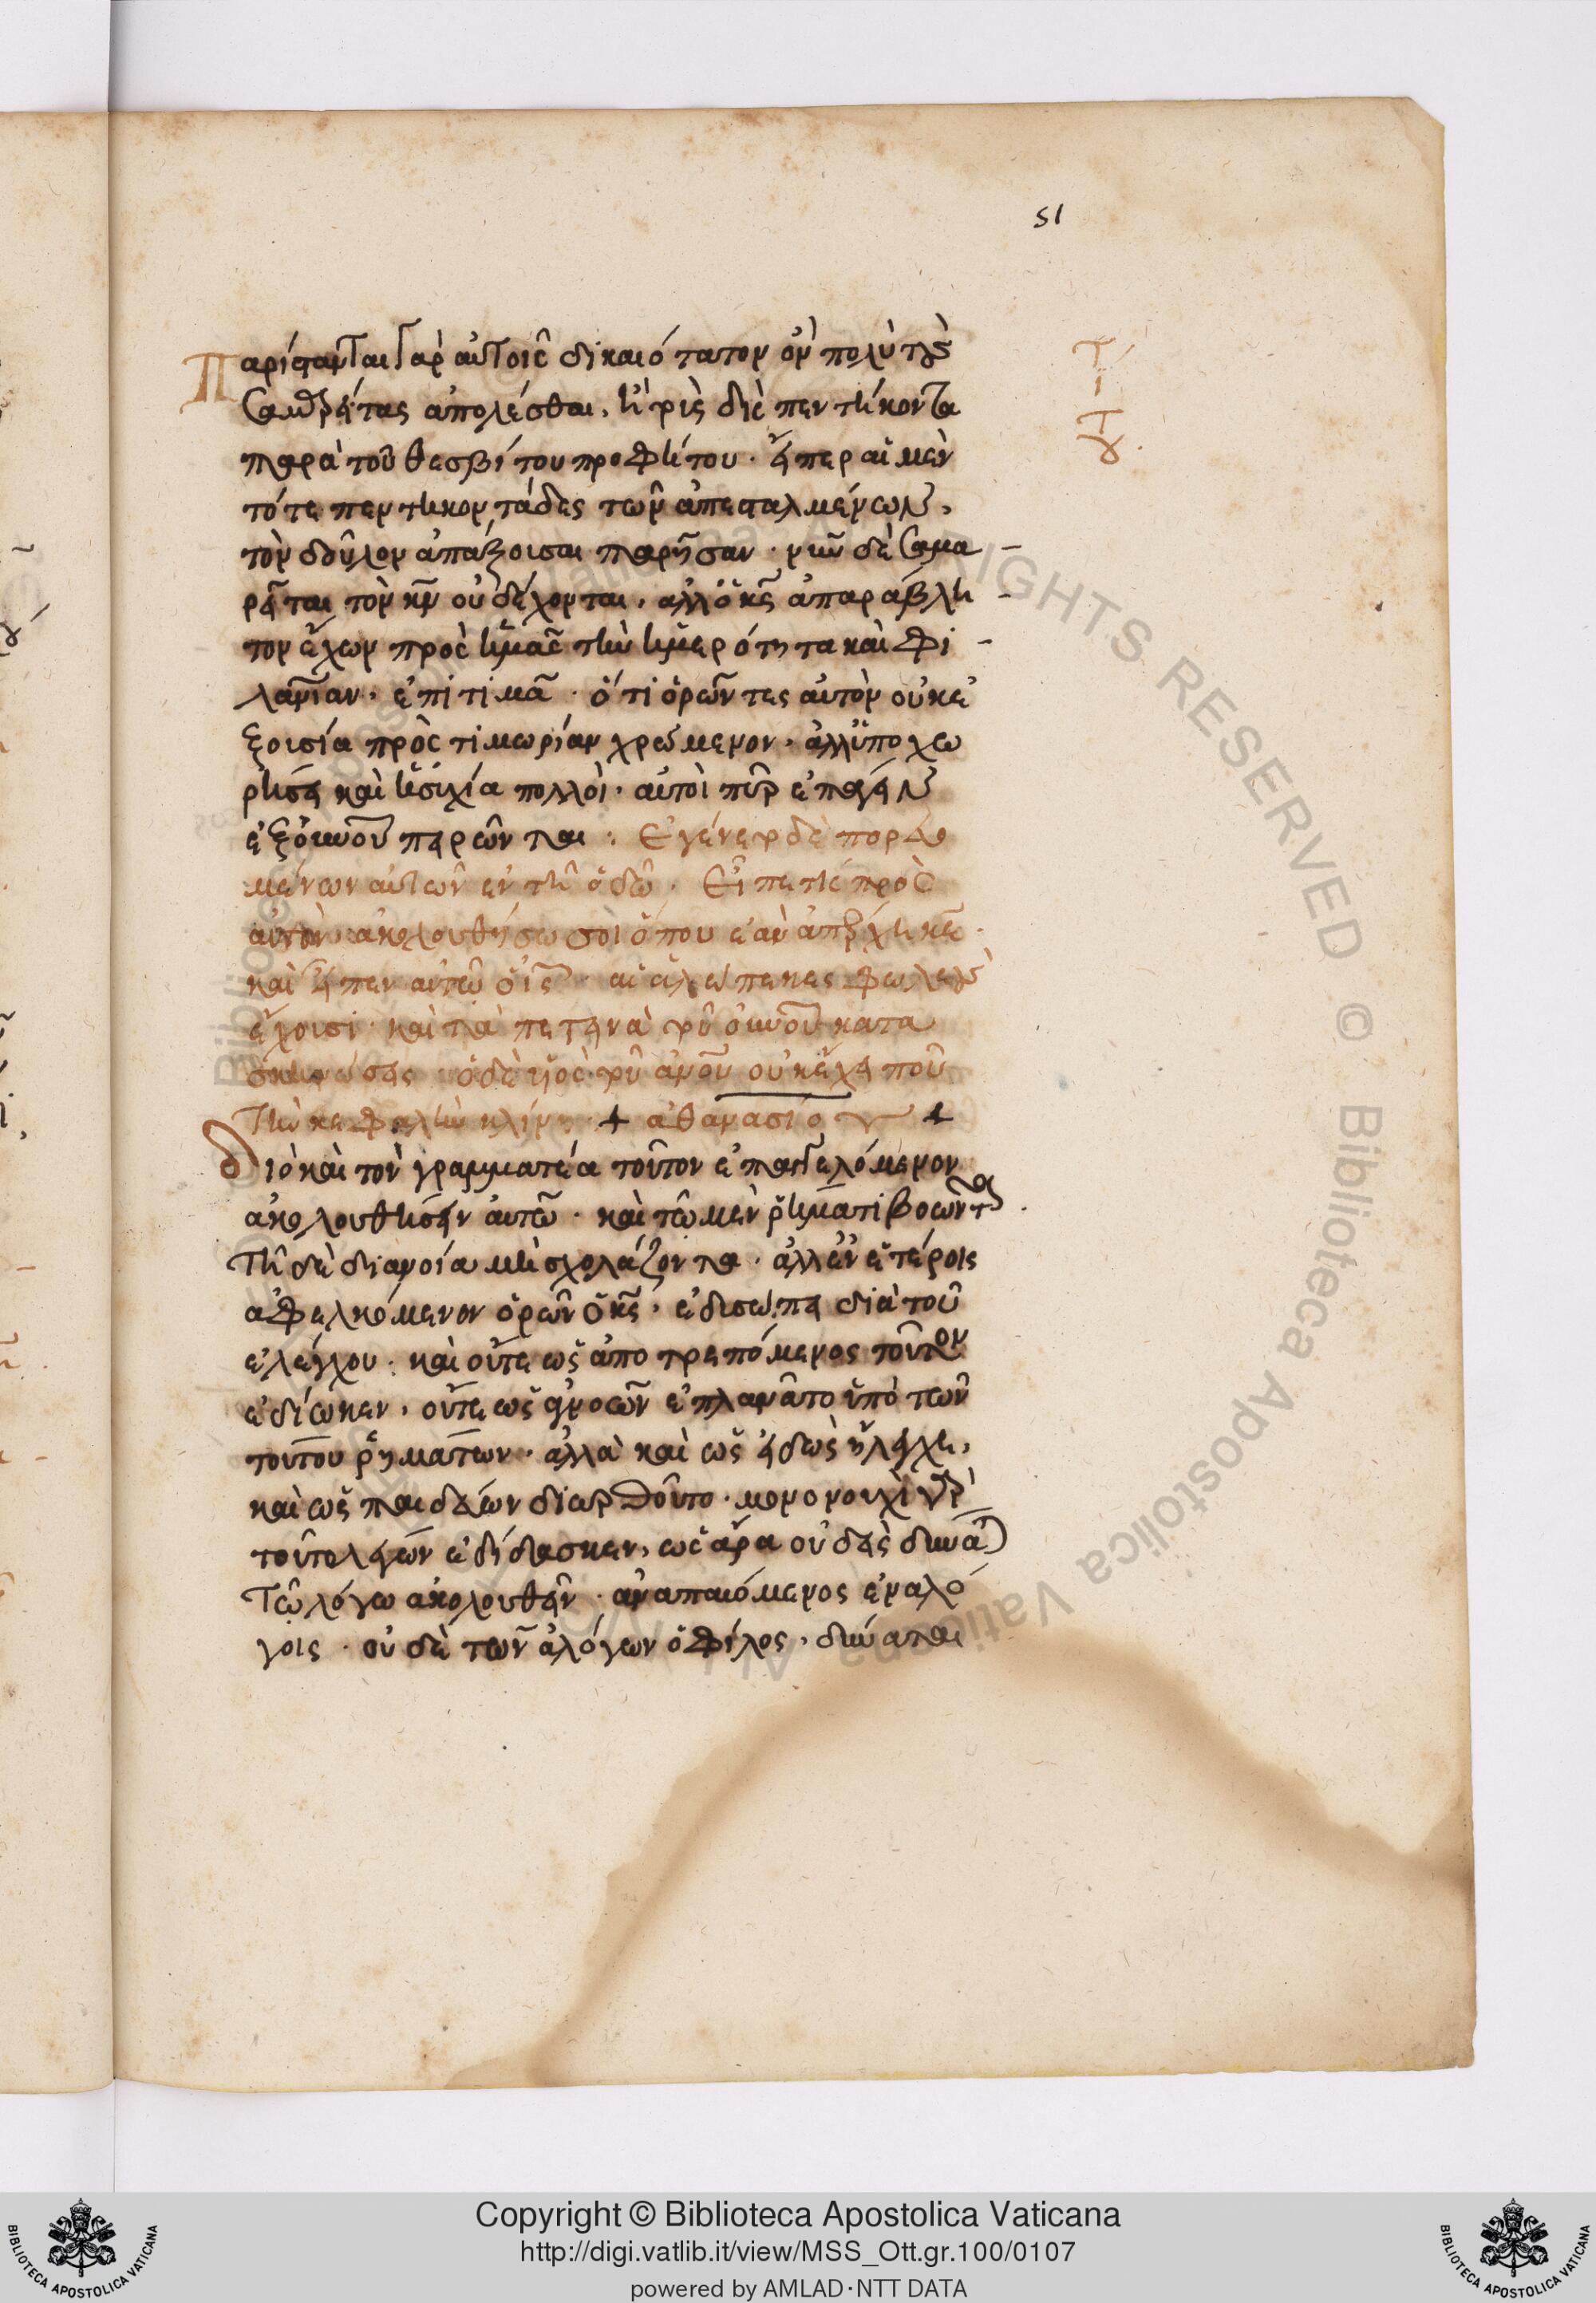 51
Παρίστανται γὰρ αὐτοῖς δικαιότατον ὂν πολὺ τοὺς
Σαμαρείτας ἀπολέσθαι, ἢ τρὶς δὶς πεντήκοντα
παρὰ τοῦ θεσβίτου προφήτου · εἴπερ αἱ μὲν
τότε πεντηκοντάδες τῶν ἀπεσταλμένων,
τὸν δοῦλον ἀπάξουσαι παρῆσαν · νῦν δὲ Σαμα
ρεῖται τὸν κν̅ οὐ δέχονται, ἀλλ ὁ κς̅ ἀπαράβλη
τον ἔχων πρὸς ἡμᾶς τὴν ἡμερότητα καὶ φι
λανίαν, ἐπιτιμᾶ · ὅτι ὁρῶντες αὐτὸν οὐκ ἐ
ξουσία πρὸς τιμωρίαν χρώμενον, ἀλλ ὑποχω
ρήσει καὶ ἡσυχία πολλοὶ · αὐτοὶ πῦρ ἐπάγειν
ἐξ οὐνοῦ πειρῶνται : Ἐγένετο δὲ πορευο
μένων αὐτῶν ἐν τῆ ὁδῶ · Εἶπέ τις πρὸς
αὐτὸν ἀκολουθήσω σοὶ ὅπου ἐὰν ἀπέρχη κε̅ ·
καὶ εἶπεν αὐτῶ ὁ ις̅ · αἱ ἀλώπεκες φωλεοὺς
ἔχουσι · καὶ τὰ πετεινὰ τοῦ οὐνοῦ κατα
σκηνώσεις · ὁ δὲ υἱὸς τοῦ ἀνοῦ οὐκ ἔχει ποῦ
τὴν κεφαλὴν κλίνη · + ἀθανασίου +
διὸ καὶ τὸν γραμματέα τοῦτον ἐπαγγελόμενον
ἀκολουθήσειν αὐτῶ · καὶ τῶ μὲν ῥήματι βοῶντα ·
τῆ δὲ διανοία μὴ σχολάζοντα · ἀλλ ἐν ἑτέροις
ἀφελκόμενον ὁρῶν ὁ κς̅, ἐδυσώπει διὰ τοῦ
ἐλέγχου · καὶ οὔτε ὡς ἀποτρεπόμενος τοῦτον
ἐδίωκεν, οὔτε ὡς ἀγνοῶν ἐπλανᾶτο ὑπὸ τῶν
τούτου ῥημάτων · ἀλλὰ καὶ ὡς εἰδὼς ἤλεγχε,
καὶ ὡς παιδεύων διωρθοῦτο · μονονουχὶ
τοῦτο λέγων ἐδίδασκεν, ὡς ἄρα οὐδεὶς δύναται
τῶ λόγω ἀκολουθεῖν · ἀναπαυόμενος ἐν ἀλό
γοις · οὐδὲ τῶν ἀλόγων ὁ φίλος, δύναται
Copyright © Biblioteca Apostolica Vaticana
http://digi.vatlib.it/view/MSS_Ott.gr.100/0107
powered by AMLAD·NTT DATA